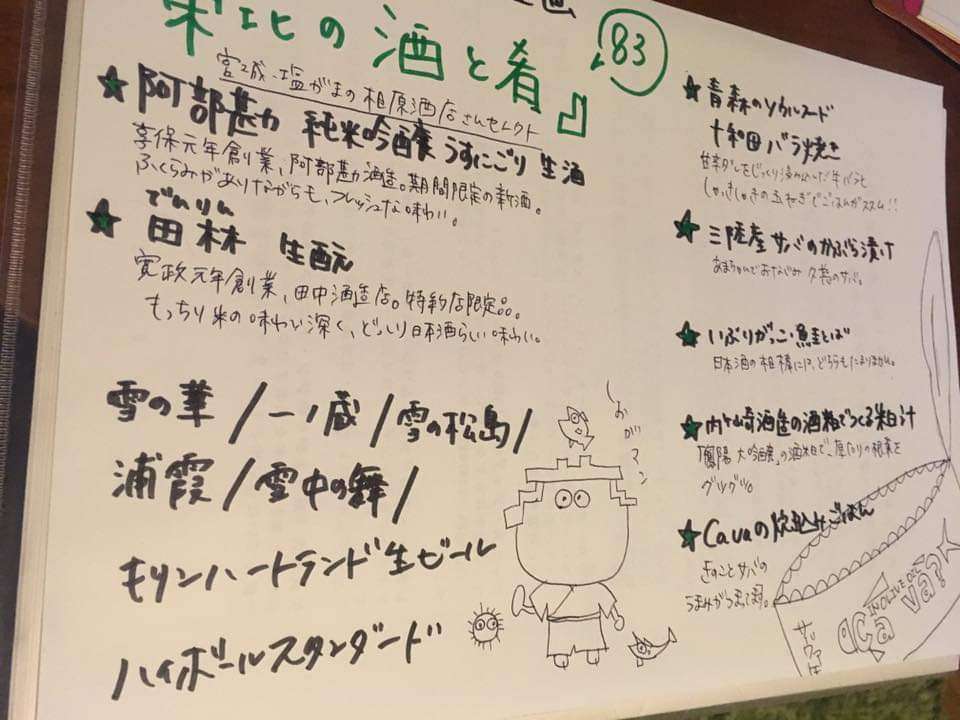 東北の酒と肴』
83
宮城・塩がまの相原酒店さんセレクト
★阿部勘 純米吟醸 うすにごり 生酒
享保元年創業、阿部勘酒造。期間限定の新酒。
ふくらみがありながらも、フレッシュな味わい。
でんりん
★田林 生酛
寛政元年創業、田中酒造店。特約店限定品。
もっちり米の味わい深く、どっしり日本酒らしい味わい。
雪の華/一ノ蔵/雪の松島/
浦霞/雪中の舞/
キリンハートランド生ビール
ハイボールスタンダード
★青森のソウルフード
十和田バラ焼き
甘辛ダレをじっくり漬め込んだ牛バラと
しゃきしゃきの玉ねぎでごはんがススム!!
★三陸産サバのかぶら漬け
あまちゃんでおなじみ 久慈のサバ。
★いぶりがっこ・鮭とば
日本酒の相棒には、どちらもたまりません。
★内ヶ崎酒造の酒粕でつくる粕汁
「鳳陽 大吟醸」の酒粕で、厚切りの根菜を
グツグツ。
★Cavaの炊込みごはん
きのことサバの
うまみがつまってます。
しおがマン
Ça
IN OLIVE OIL
va?